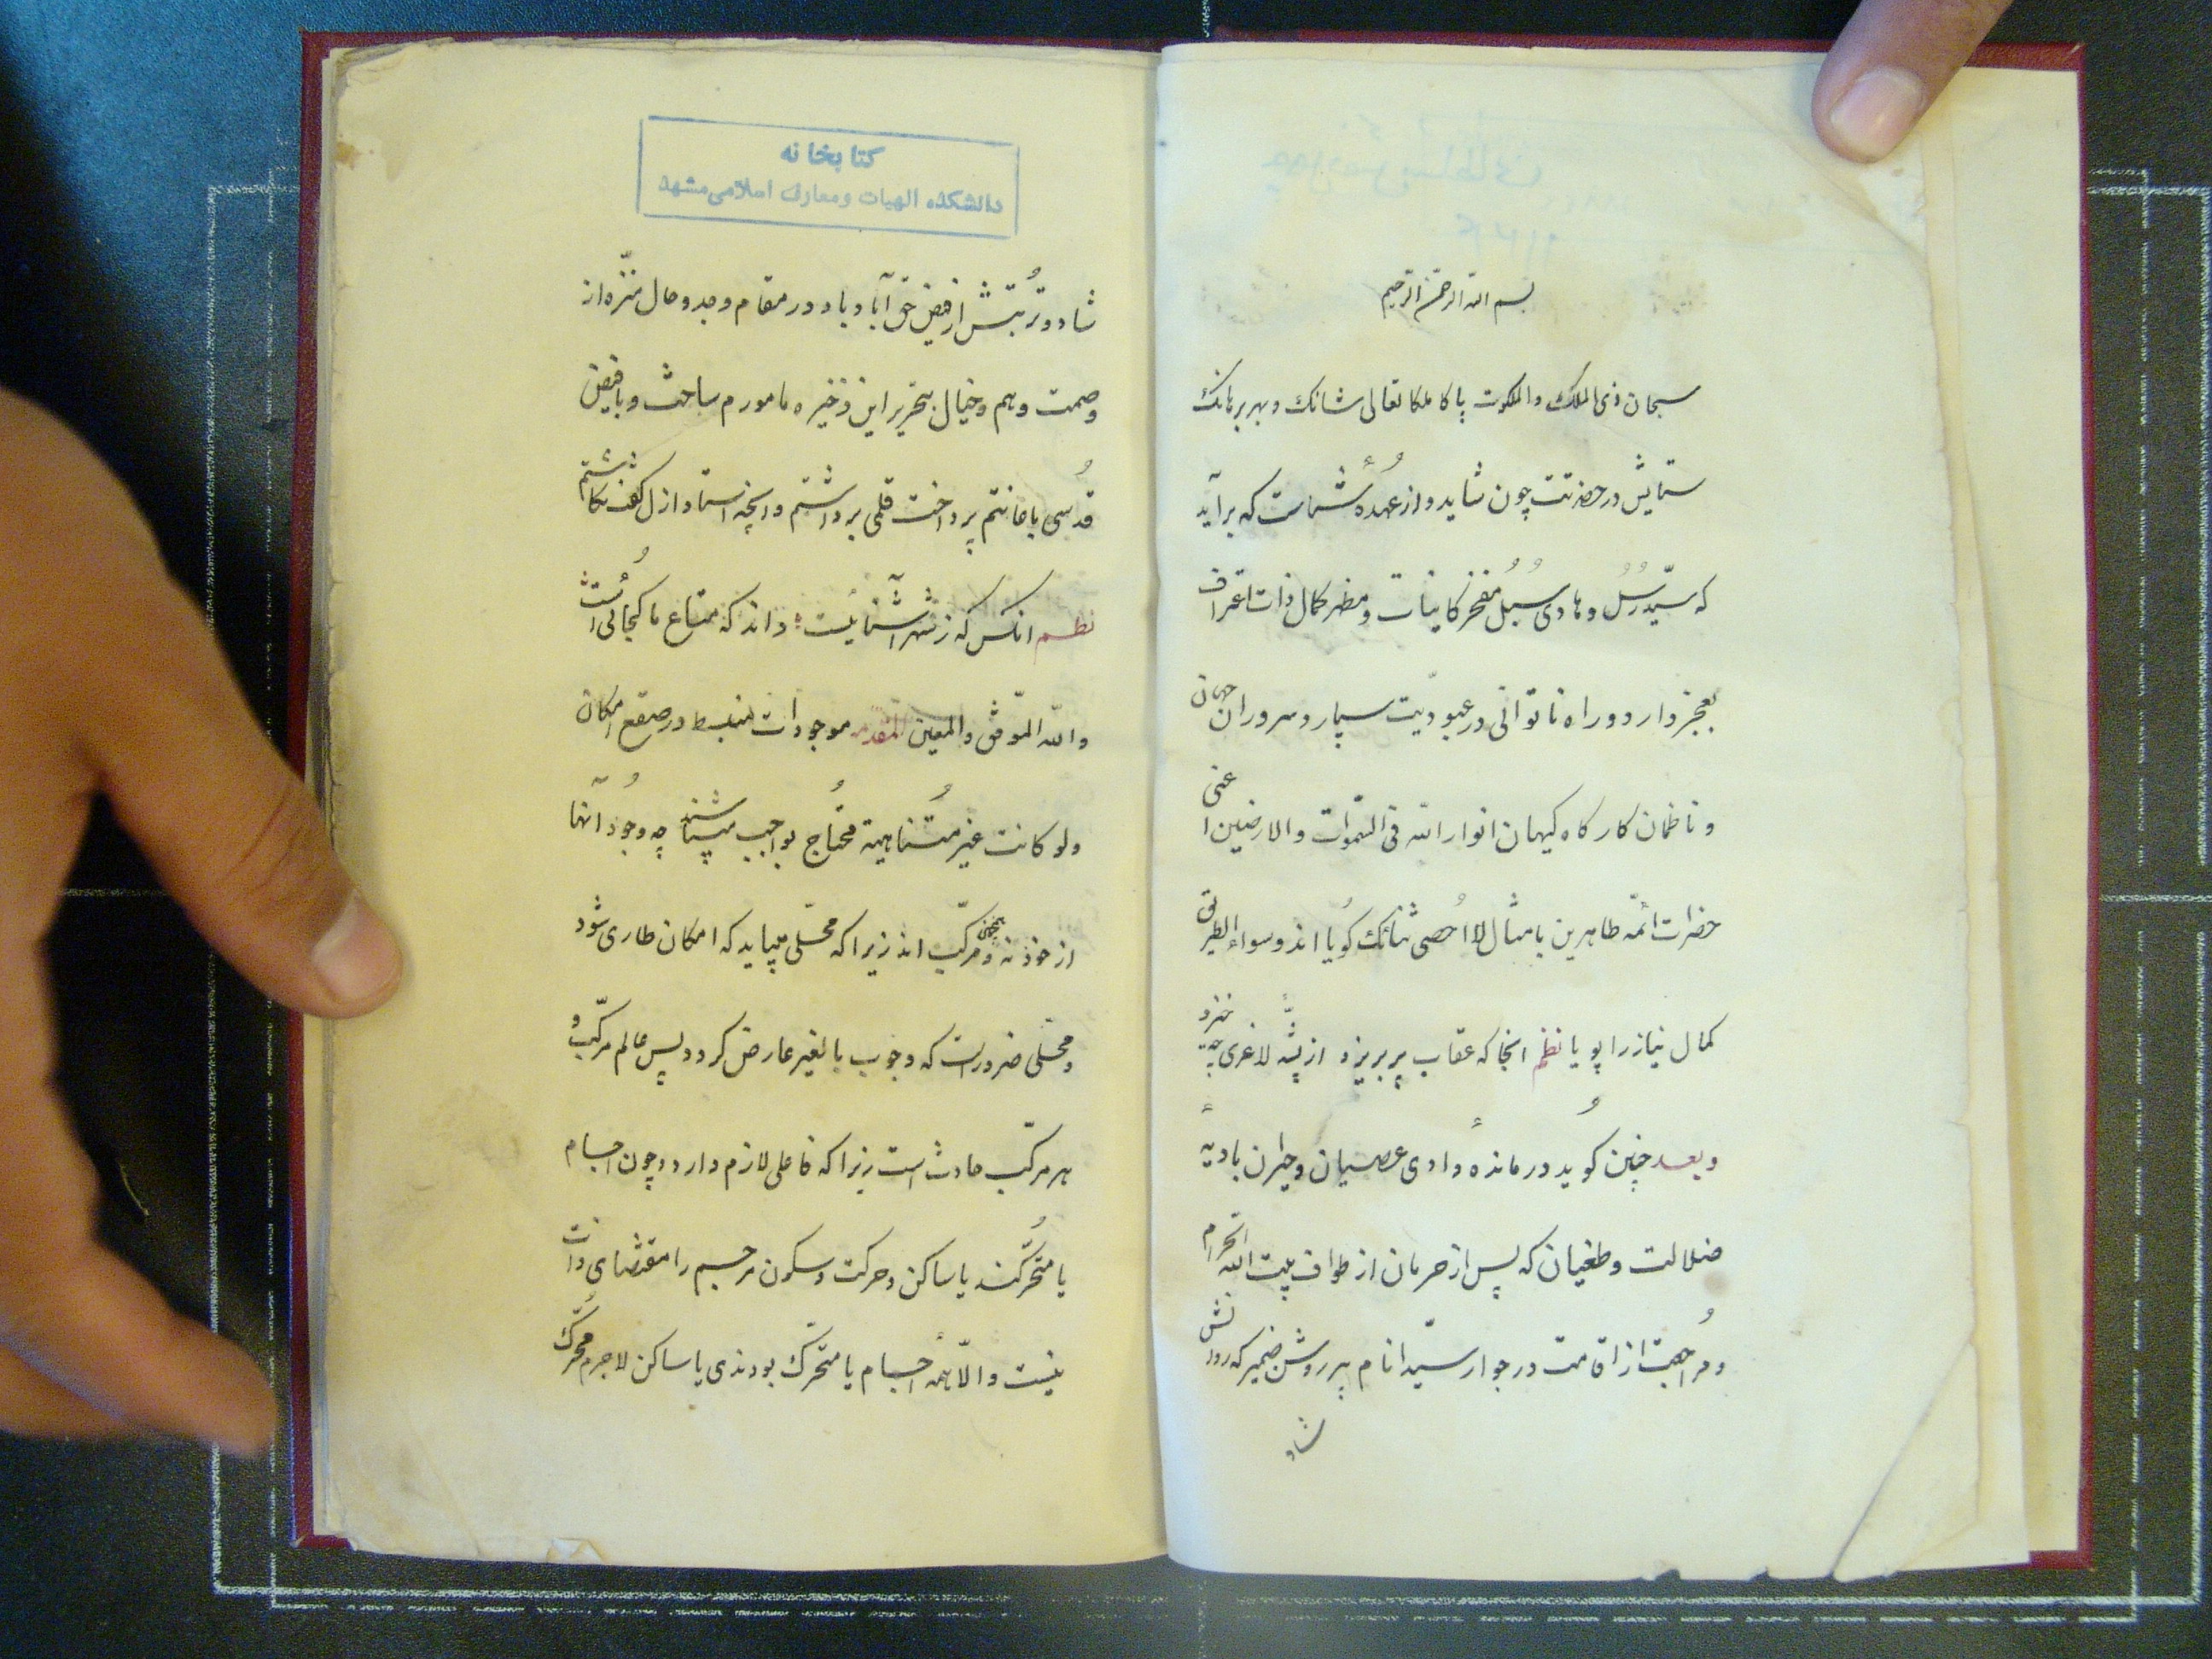 بسم الله الرحمن الرحیم
سبحان ذی الملک والملکوت پاکا ملکا تعالی شانک و بهر برهانک
ستایش در حضرتت چون شاید و از عهدهٔ ثنات که برآید
که سیّد رُسُل و هادی سُبُل مفخر کاینات و مظهر کمال ذات اعتراف
بعجز دارد و راه ناتوانی در عبودیّت سپارد و سروران جهان
و ناظمان کارکاه کیهان انوار الله فی السّموات والارضین اعنی
حضرات ائمّه طاهرین بامثال لا اُحصی ثنائک کویا اند و سواء الطریق
کمال نیاز را پویا نظم انجا که عقاب پر بریزد از پشّهٔ لاغری چه خیزد
و بعد چنین کوید درماندهٔ وادی عصیان و حیران بادیهٔ
ضلالت و طغیان که پس از حرمان از طواف بیت الله الحرام
و مُراجعت از اقامت در جوار سیّد انام پیر روشن ضمیر که روانش
شاد
کتابخانه
دانشکده الهیات و معارف اسلامی مشهد
شاد و تُربتش از فیض حق آباد باد در مقام وجد و حال منزّه از
وصمت وهم و خیال بتحریر این ذخیره مامورم ساخت و بافیض
قدُسی با خانتم پرداخت قلمی برداشتم و انچه استاد ازل کفت نکاشتم
نظم انکس که ز شهر آشنائیست داند که متاع ما کجائی است
والله الموّفق والمعین المقدمه موجودات منبسط در صقع امکان
ولو کانت غیر مُتناهیة محُتاج بواجب میباشند چه وجُود آنها
از خود نه و همچنین مرکّب اند زیرا که محلّی میباید که امکان طاری شود
و محلّی ضرور است که وجوب بالغیر عارض کردد پس عالم مرکّب و
هر مرکّب حادث است زیرا که فاعلی لازم دارد و چون اجسام
یا متُحرّکند یا ساکن و حرکت و سکون مر جسم را مقتضای ذات
نیست والّا همهٔ اجسام یا متحرّک بودندی یا ساکن لاجرم مُحرّک